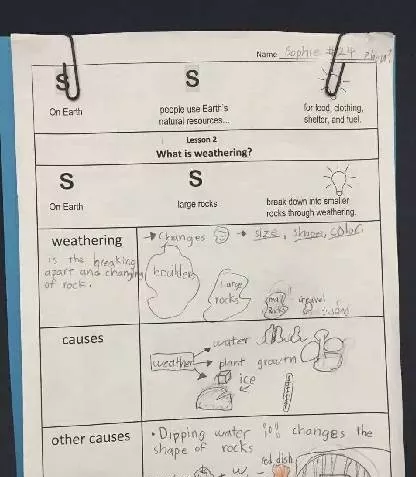 Name Sophie #24
S
S
On Earth
people use Earth's
natural resources...
for food, clothing,
shelter, and fuel.
Lesson 2
What is weathering?
S
S
On Earth
large rocks
break down into smaller
rocks through weathering.
weathering
is the breaking
apart and changing
of rock.
Changes → size, shape, color
boulder
large
rocks
small
rocks
gravel
sand
causes
weather
water
plant growth
ice
other causes
• Dipping water changes the
shape of rocks
red dish